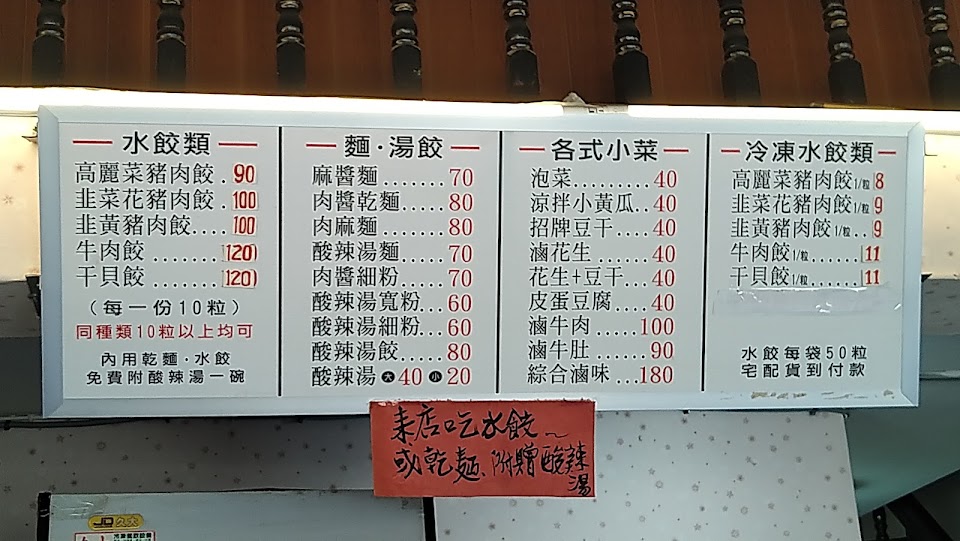 水餃類
高麗菜豬肉餃.90
韭菜花豬肉餃.100
韭黃豬肉餃....100
牛肉餃.......120
干貝餃.......120
(每一份10粒)
同種類10粒以上均可
內用乾麵·水餃
免費附酸辣湯一碗
麵·湯餃
麻醬麵.......70
肉醬乾麵......80
肉麻麵.......80
酸辣湯麵.....70
肉醬細粉.....70
酸辣湯寬粉...60
酸辣湯細粉...60
酸辣湯餃.....80
酸辣湯大40小20
各式小菜
泡菜........40
涼拌小黃瓜..40
招牌豆干....40
滷花生......40
花生+豆干...40
皮蛋豆腐....40
滷牛肉.....100
滷牛肚......90
綜合滷味...180
冷凍水餃類
高麗菜豬肉餃1/粒8
韭菜花豬肉餃1/粒.9
韭黃豬肉餃1/粒..9
牛肉餃1/粒......11
干貝餃1/粒......11
水餃每袋50粒
宅配貨到付款
來店吃水餃~
或乾麵、附贈酸辣
湯
久大